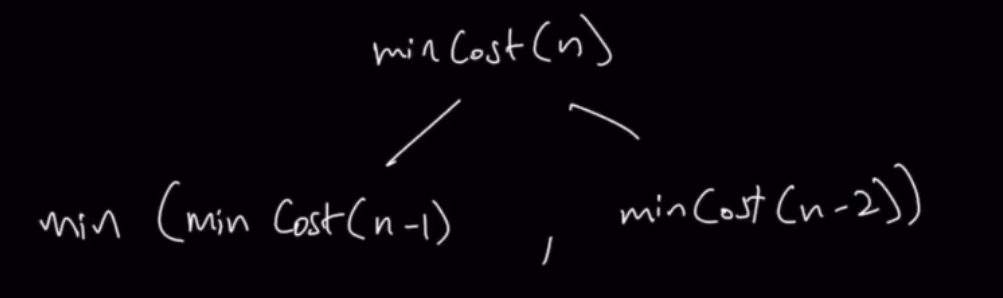 minCost(n)
min (min Cost(n-1) , minCost(n-2))